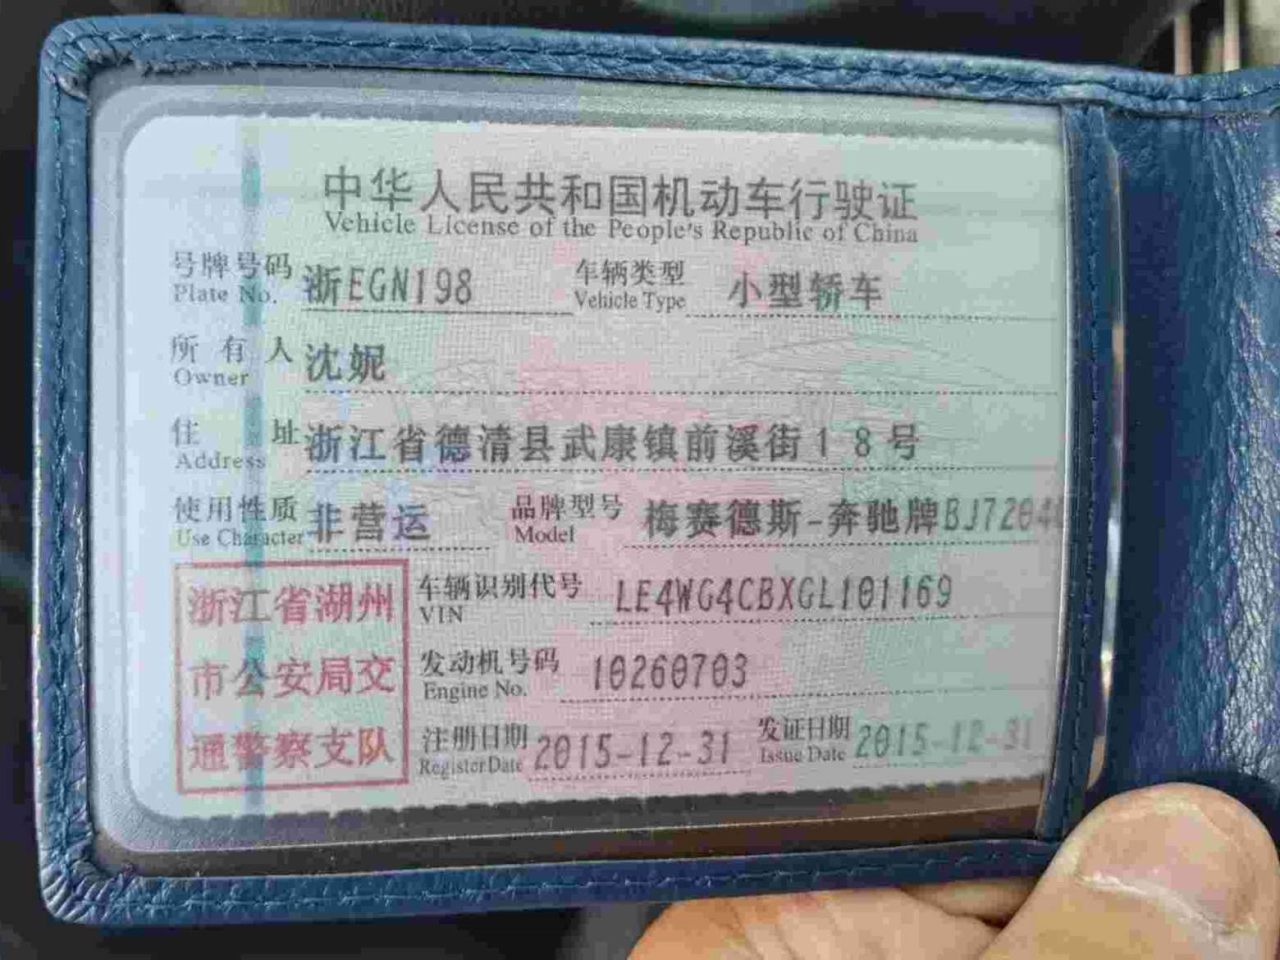 中华人民共和国机动车行驶证
Vehicle License of the People's Republic of China
号牌号码 浙EGN198 车辆类型 小型轿车
Plate No. Vehicle Type
所有人 沈妮
Owner
住址 浙江省德清县武康镇前溪街18号
Address
使用性质 非营运 品牌型号 梅赛德斯-奔驰牌BJ7204
Use Character Model
浙江省湖州
市公安局交
通警察支队
车辆识别代号 LE4WG4CBXGL101169
VIN
发动机号码 10260703
Engine No.
注册日期 2015-12-31 发证日期 2015-12-31
Register Date Issue Date